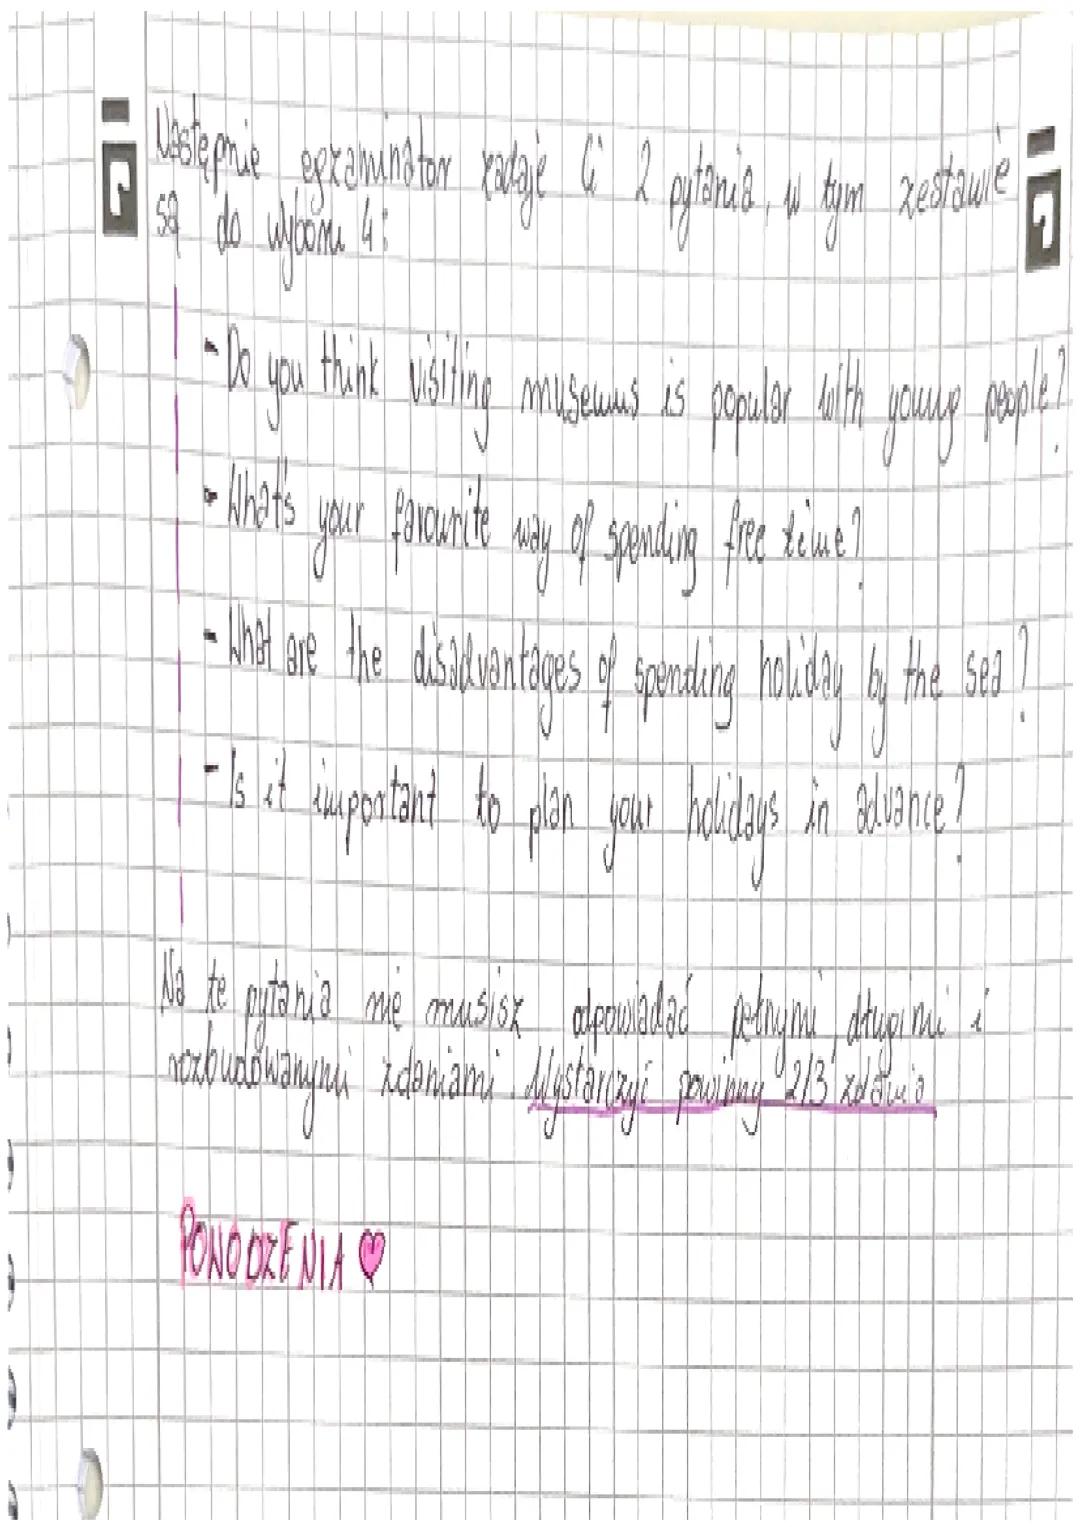 Następnie egzaminator zadaje Ci 2 pytania, w tym zestawie
są do wyboru 4:
- Do you think visiting museums is popular with young people?
- What's your favourite way of spending free time?
- What are the disadvantages of spending holiday by the sea?
- Is it important to plan your holidays in advance?
Na te pytania nie musisz odpowiadać pełnymi, długimi i
rozbudowanymi zdaniami. Wystarczyć powinny 2/3 zdania
POWODZENIA